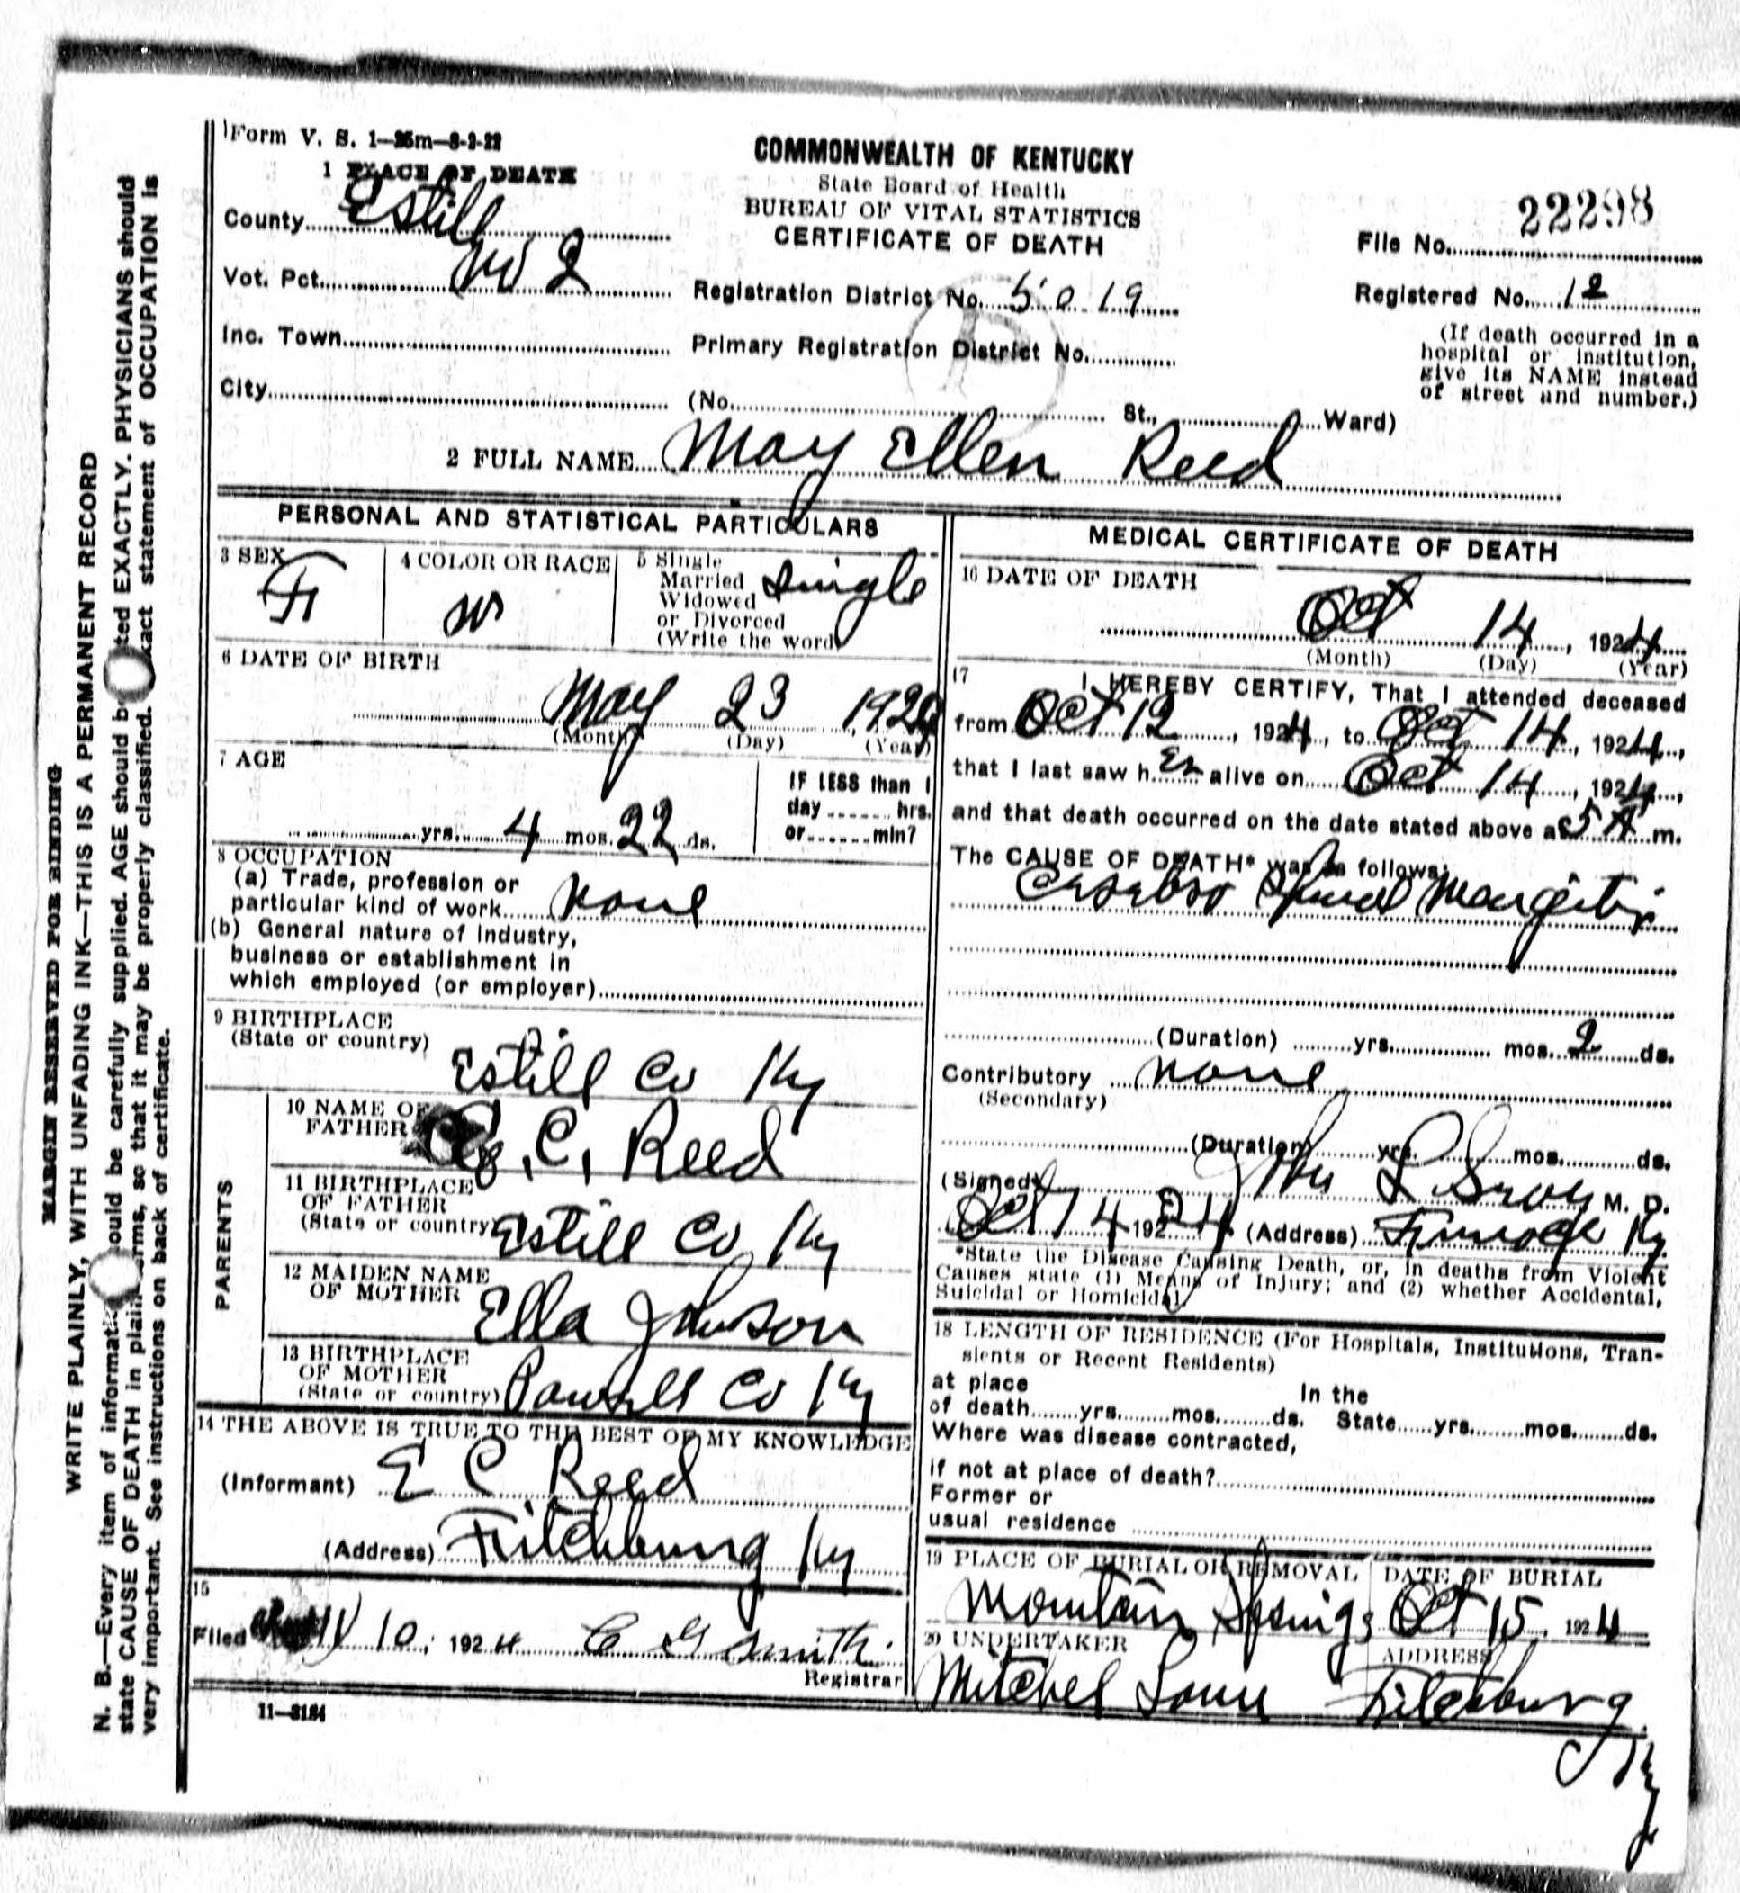 Form V. S. 1—25m—8-3-22
COMMONWEALTH OF KENTUCKY
State Board of Health
BUREAU OF VITAL STATISTICS
CERTIFICATE OF DEATH
1 PLACE OF DEATH
County Estill
Vot. Pct. No 2
Inc. Town
City
Registration District No. 5019
Primary Registration District No.
(No. St., Ward)
File No. 22298
Registered No. 12
(If death occurred in a
hospital or institution,
give its NAME instead
of street and number.)
2 FULL NAME May Ellen Reed
PERSONAL AND STATISTICAL PARTICULARS
3 SEX F
4 COLOR OR RACE W
5 Single
Married
Widowed
or Divorced
(Write the word) Single
6 DATE OF BIRTH
May 23, 1924
(Month) (Day) (Year)
7 AGE
yrs. 4 mos. 22 ds.
IF LESS than 1
day hrs.
or min?
8 OCCUPATION
(a) Trade, profession or
particular kind of work none
(b) General nature of industry,
business or establishment in
which employed (or employer)
9 BIRTHPLACE
(State or country)
Estill Co Ky
PARENTS
10 NAME OF
FATHER E. C. Reed
11 BIRTHPLACE
OF FATHER
(State or country) Estill Co, Ky
12 MAIDEN NAME
OF MOTHER Ella Johnson
13 BIRTHPLACE
OF MOTHER
(State or country) Powell Co Ky
14 THE ABOVE IS TRUE TO THE BEST OF MY KNOWLEDGE
(Informant) E C Reed
(Address) Fitchburg Ky
15
Filed 10, 1924 C G Smith
Registrar
11—3184
MEDICAL CERTIFICATE OF DEATH
16 DATE OF DEATH
Oct 14, 1924
(Month) (Day) (Year)
17 I HEREBY CERTIFY, That I attended deceased
from Oct 12, 1924, to Oct 14, 1924,
that I last saw h er alive on Oct 14, 1924,
and that death occurred on the date stated above at 5 A m.
The CAUSE OF DEATH* was as follows:
Cerebro Spinal Mengitis
(Duration) yrs. mos. 2 ds.
Contributory none
(Secondary)
(Duration) yrs. mos. ds.
(Signed) M. D.
Oct 14 1924 (Address) Ky
*State the Disease Causing Death, or, in deaths from Violent
Causes state (1) Means of Injury; and (2) whether Accidental,
Suicidal or Homicidal
18 LENGTH OF RESIDENCE (For Hospitals, Institutions, Tran-
sients or Recent Residents)
at place In the
of death yrs. mos. ds. State yrs. mos. ds.
Where was disease contracted,
if not at place of death?
Former or
usual residence
19 PLACE OF BURIAL OR REMOVAL DATE OF BURIAL
Mountain Springs Oct 15, 1924
20 UNDERTAKER ADDRESS
Mitchel Fitchburg
Ky
MARGIN RESERVED FOR BINDING
WRITE PLAINLY, WITH UNFADING INK—THIS IS A PERMANENT RECORD
N. B.—Every item of informati ould be carefully supplied. AGE should b ted EXACTLY. PHYSICIANS should
state CAUSE OF DEATH in plain erms, so that it may be properly classified. xact statement of OCCUPATION is
very important. See instructions on back of certificate.